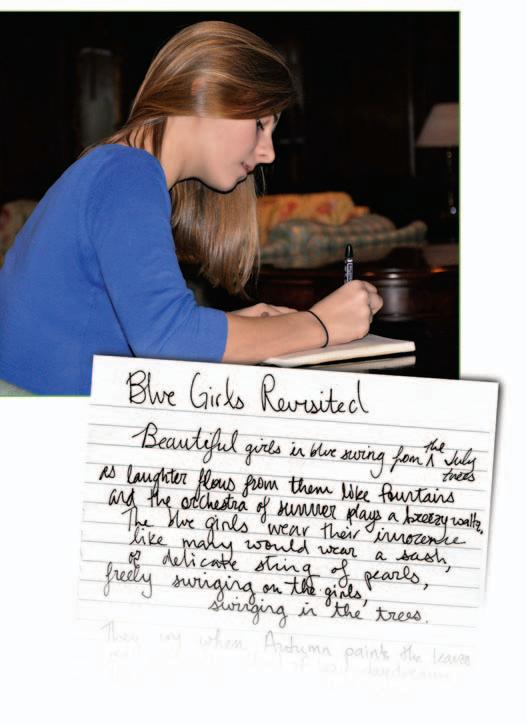 Blue Girls Revisited
Beautiful girls in blue swing from the July trees
as laughter flows from them like fountains
and the orchestra of summer plays a breezy waltz.
The blue girls wear their innocence
like many would wear a sash,
or delicate string of pearls,
freely swinging on the girls,
swinging in the trees.
They cry when Autumn paints the leaves